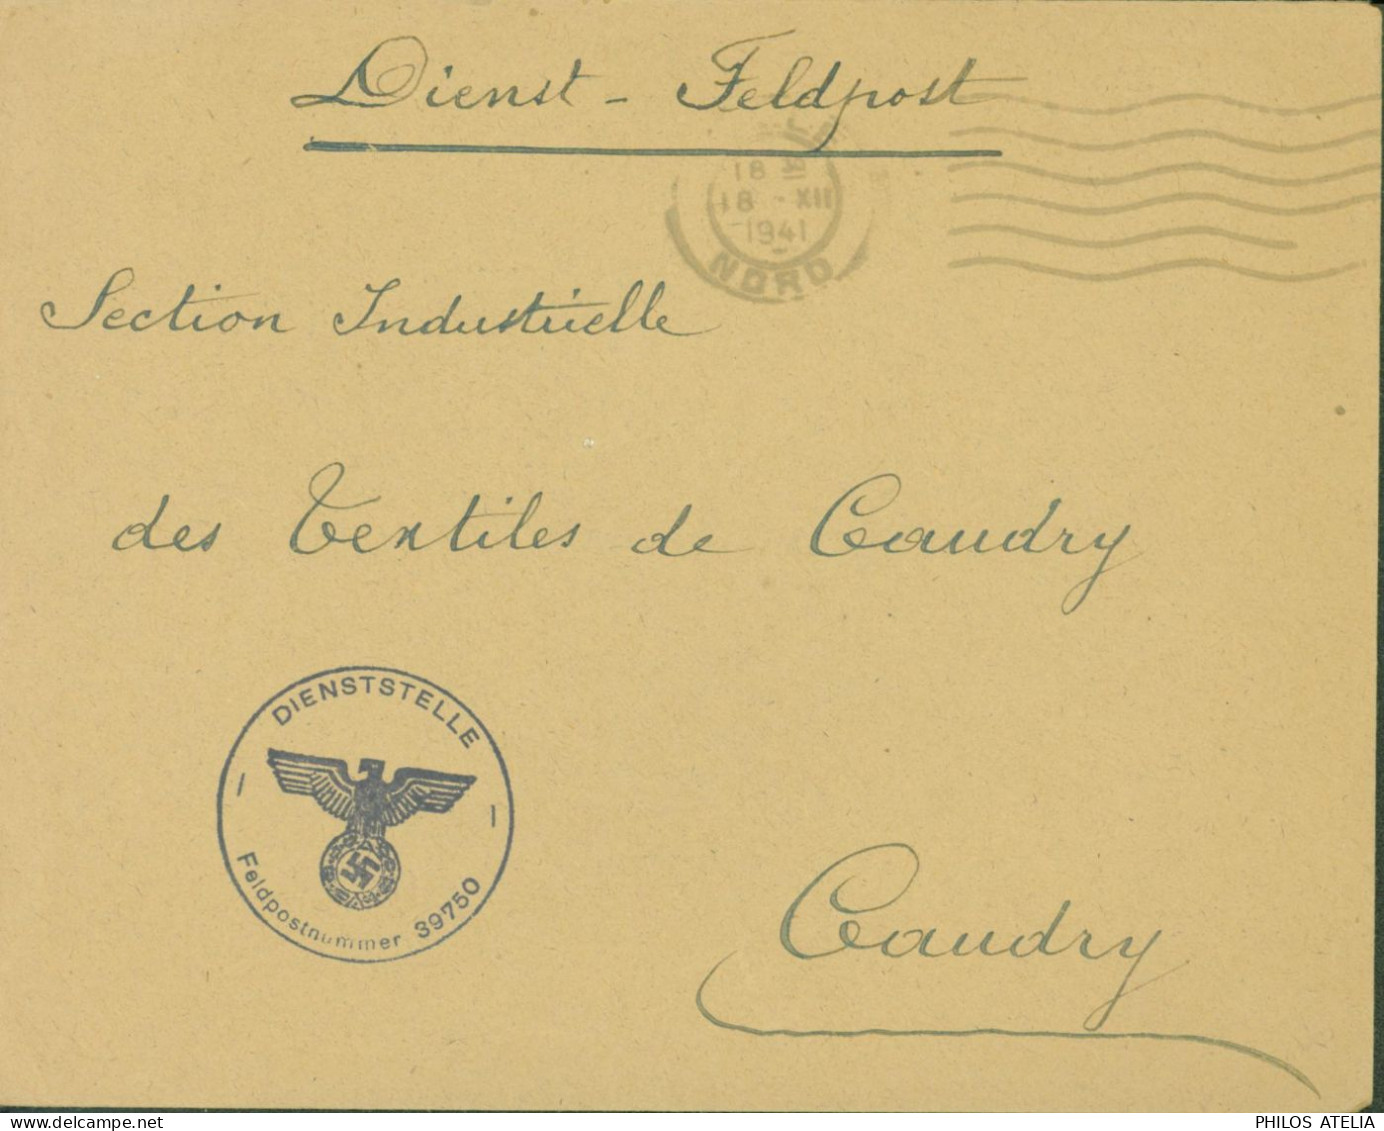 Dienst - Feldpost
18 H
18 - XII
1941
NORD
Section Industrielle
des Textiles de Caudry
DIENSTSTELLE
Feldpostnummer 39750
Caudry
www.delcampe.net
PHILOS ATELIA